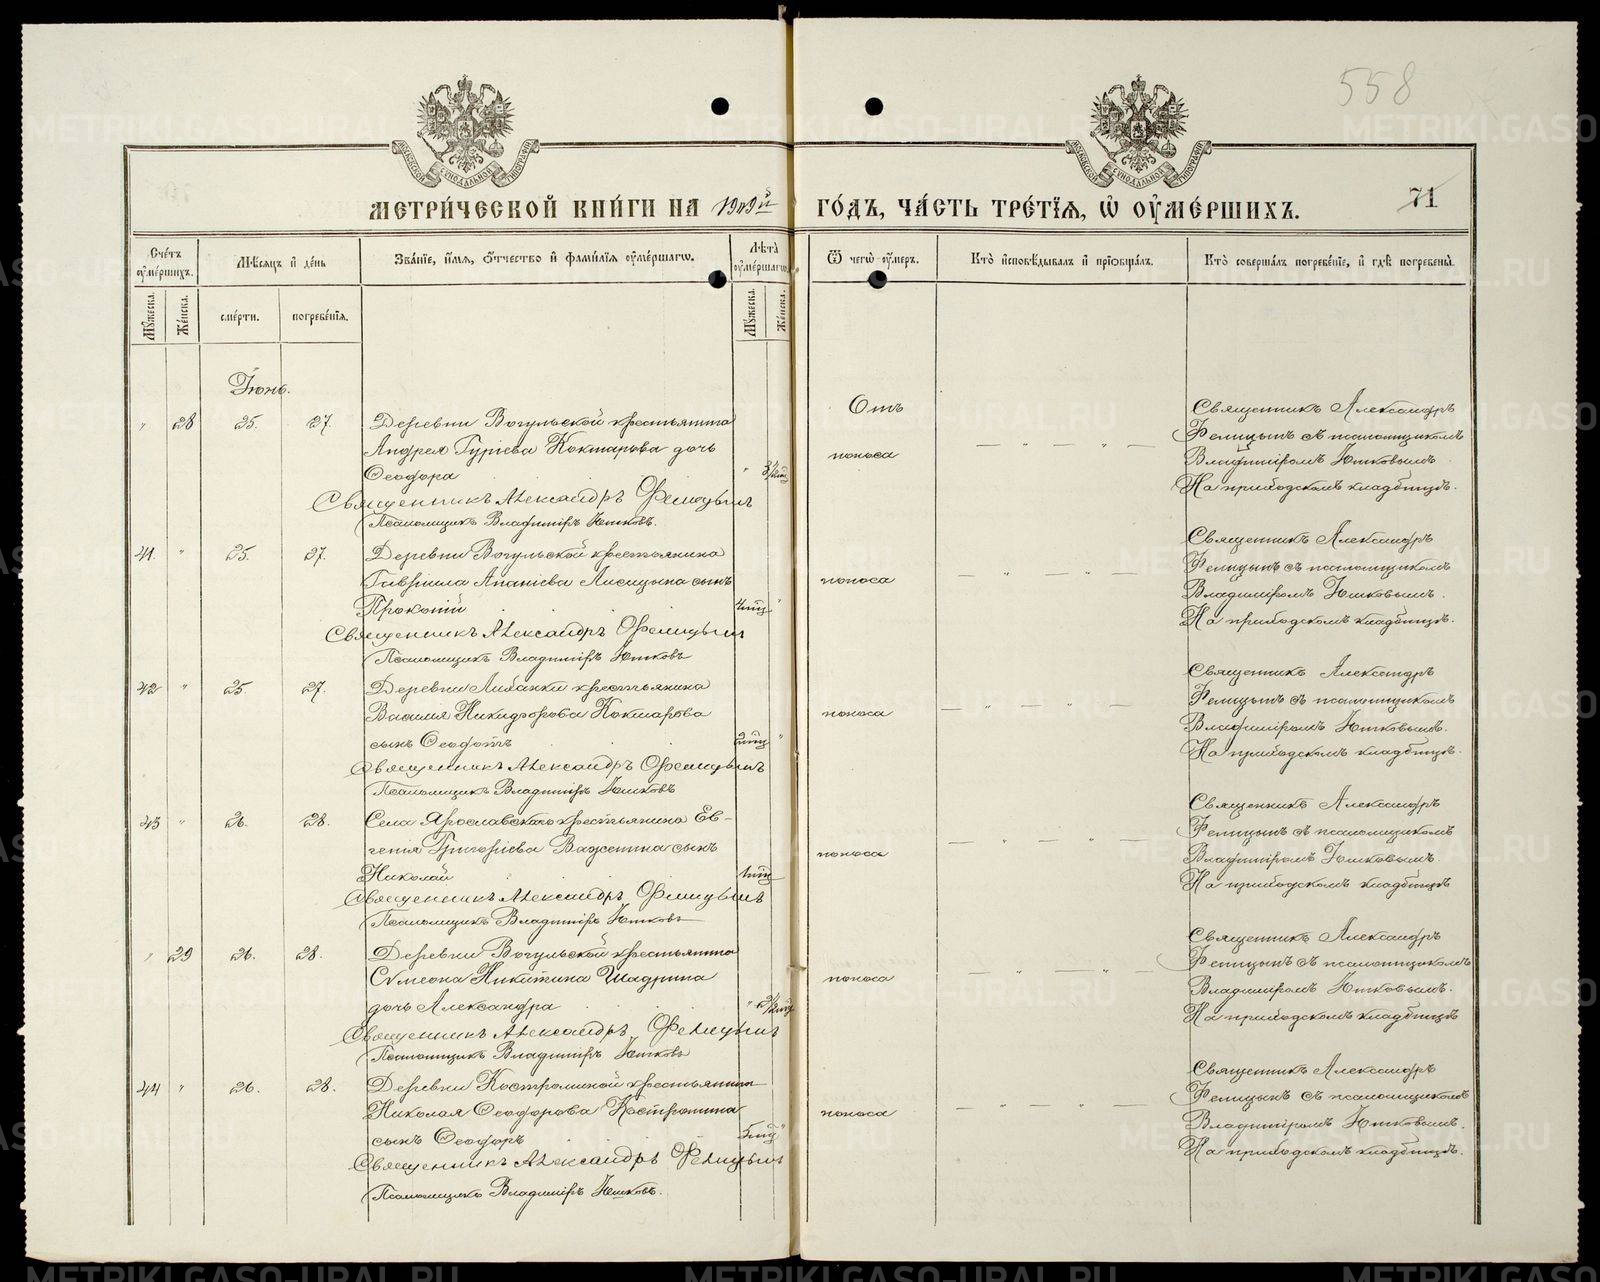 558
МЕТРИ́ЧЕСКОЙ КНИ́ГИ НА 1909й ГО́ДЪ, ЧА́СТЬ ТРЕ́ТЇѦ, Ѡ҆ ОУ҆МЕ́РШИХЪ.
71
Сче́тъ оумершихъ.
Мѣ́сѧцъ и де́нь
Зва́нїе, и́мѧ, ѻтчество и фами́лїѧ оуме́ршагѡ.
Лѣ́та оуме́ршагѡ.
Ѿ чегѡ̀ оу́меръ.
Кто̀ исповѣ́дывалъ и прїобща́лъ.
Кто̀ соверша́лъ погребе́нїе, и гдѣ̀ погребены̀.
Мꙋ́жеска.
Же́нска.
сме́рти.
погребе́нїѧ.
Мꙋ́жеска.
Же́нска.
Іюнь.
" 28 25. 27. Деревни Вогульской крестьянина
Андрея Гуріева Кокшарова дочь
Ѳеодора " 3½
Священникъ Александръ Фелицынъ
Псаломщикъ Владиміръ Юшковъ.
Отъ
поноса
— " — " —
Священникъ Александръ
Фелицынъ съ псаломщикомъ
Владиміромъ Юшковымъ
На приходскомъ кладбищѣ.
41. " 25. 27. Деревни Вогульской крестьянина
Гавріила Ананіева Лисицына сынъ
Прокопій 4мѣц "
Священникъ Александръ Фелицынъ
Псаломщикъ Владиміръ Юшковъ
поноса
— " — " —
Священникъ Александръ
Фелицынъ съ псаломщикомъ
Владиміромъ Юшковымъ.
На приходскомъ кладбищѣ.
42 " 25. 27. Деревни Липанки крестьянина
Василія Никифорова Кокшарова
сынъ Ѳеодотъ "
Священникъ Александръ Фелицынъ
Псаломщикъ Владиміръ Юшковъ
поноса
— " — " —
Священникъ Александръ
Фелицынъ съ псаломщикомъ
Владиміромъ Юшковымъ.
На приходскомъ кладбищѣ.
43 " 26. 28. Села Ярославскаго крестьянина Ев-
генія Григоріева Важенина сынъ
Николай 1мѣц
Священникъ Александръ Фелицынъ
Псаломщикъ Владиміръ Юшковъ
поноса
— " — " —
Священникъ Александръ
Фелицынъ съ псаломщикомъ
Владиміромъ Юшковымъ.
На приходскомъ кладбищѣ
" 29 26. 28. Деревни Вогульской крестьянина
Сѵмеона Никитина Шадрина
дочь Александра " 2½мѣц
Священникъ Александръ Фелицынъ
Псаломщикъ Владиміръ Юшковъ
поноса
— " — " —
Священникъ Александръ
Фелицынъ съ псаломщикомъ
Владиміромъ Юшковымъ.
На приходскомъ кладбищѣ
44 " 26. 28. Деревни Костроминой крестьянина
Николая Ѳеодорова Костромина
сынъ Ѳеодоръ 5мѣц "
Священникъ Александръ Фелицынъ
Псаломщикъ Владиміръ Юшковъ.
поноса
— " — " —
Священникъ Александръ
Фелицынъ съ псаломщикомъ
Владиміромъ Юшковымъ.
На приходскомъ кладбищѣ.
METRIKI.GASO-URAL.RU